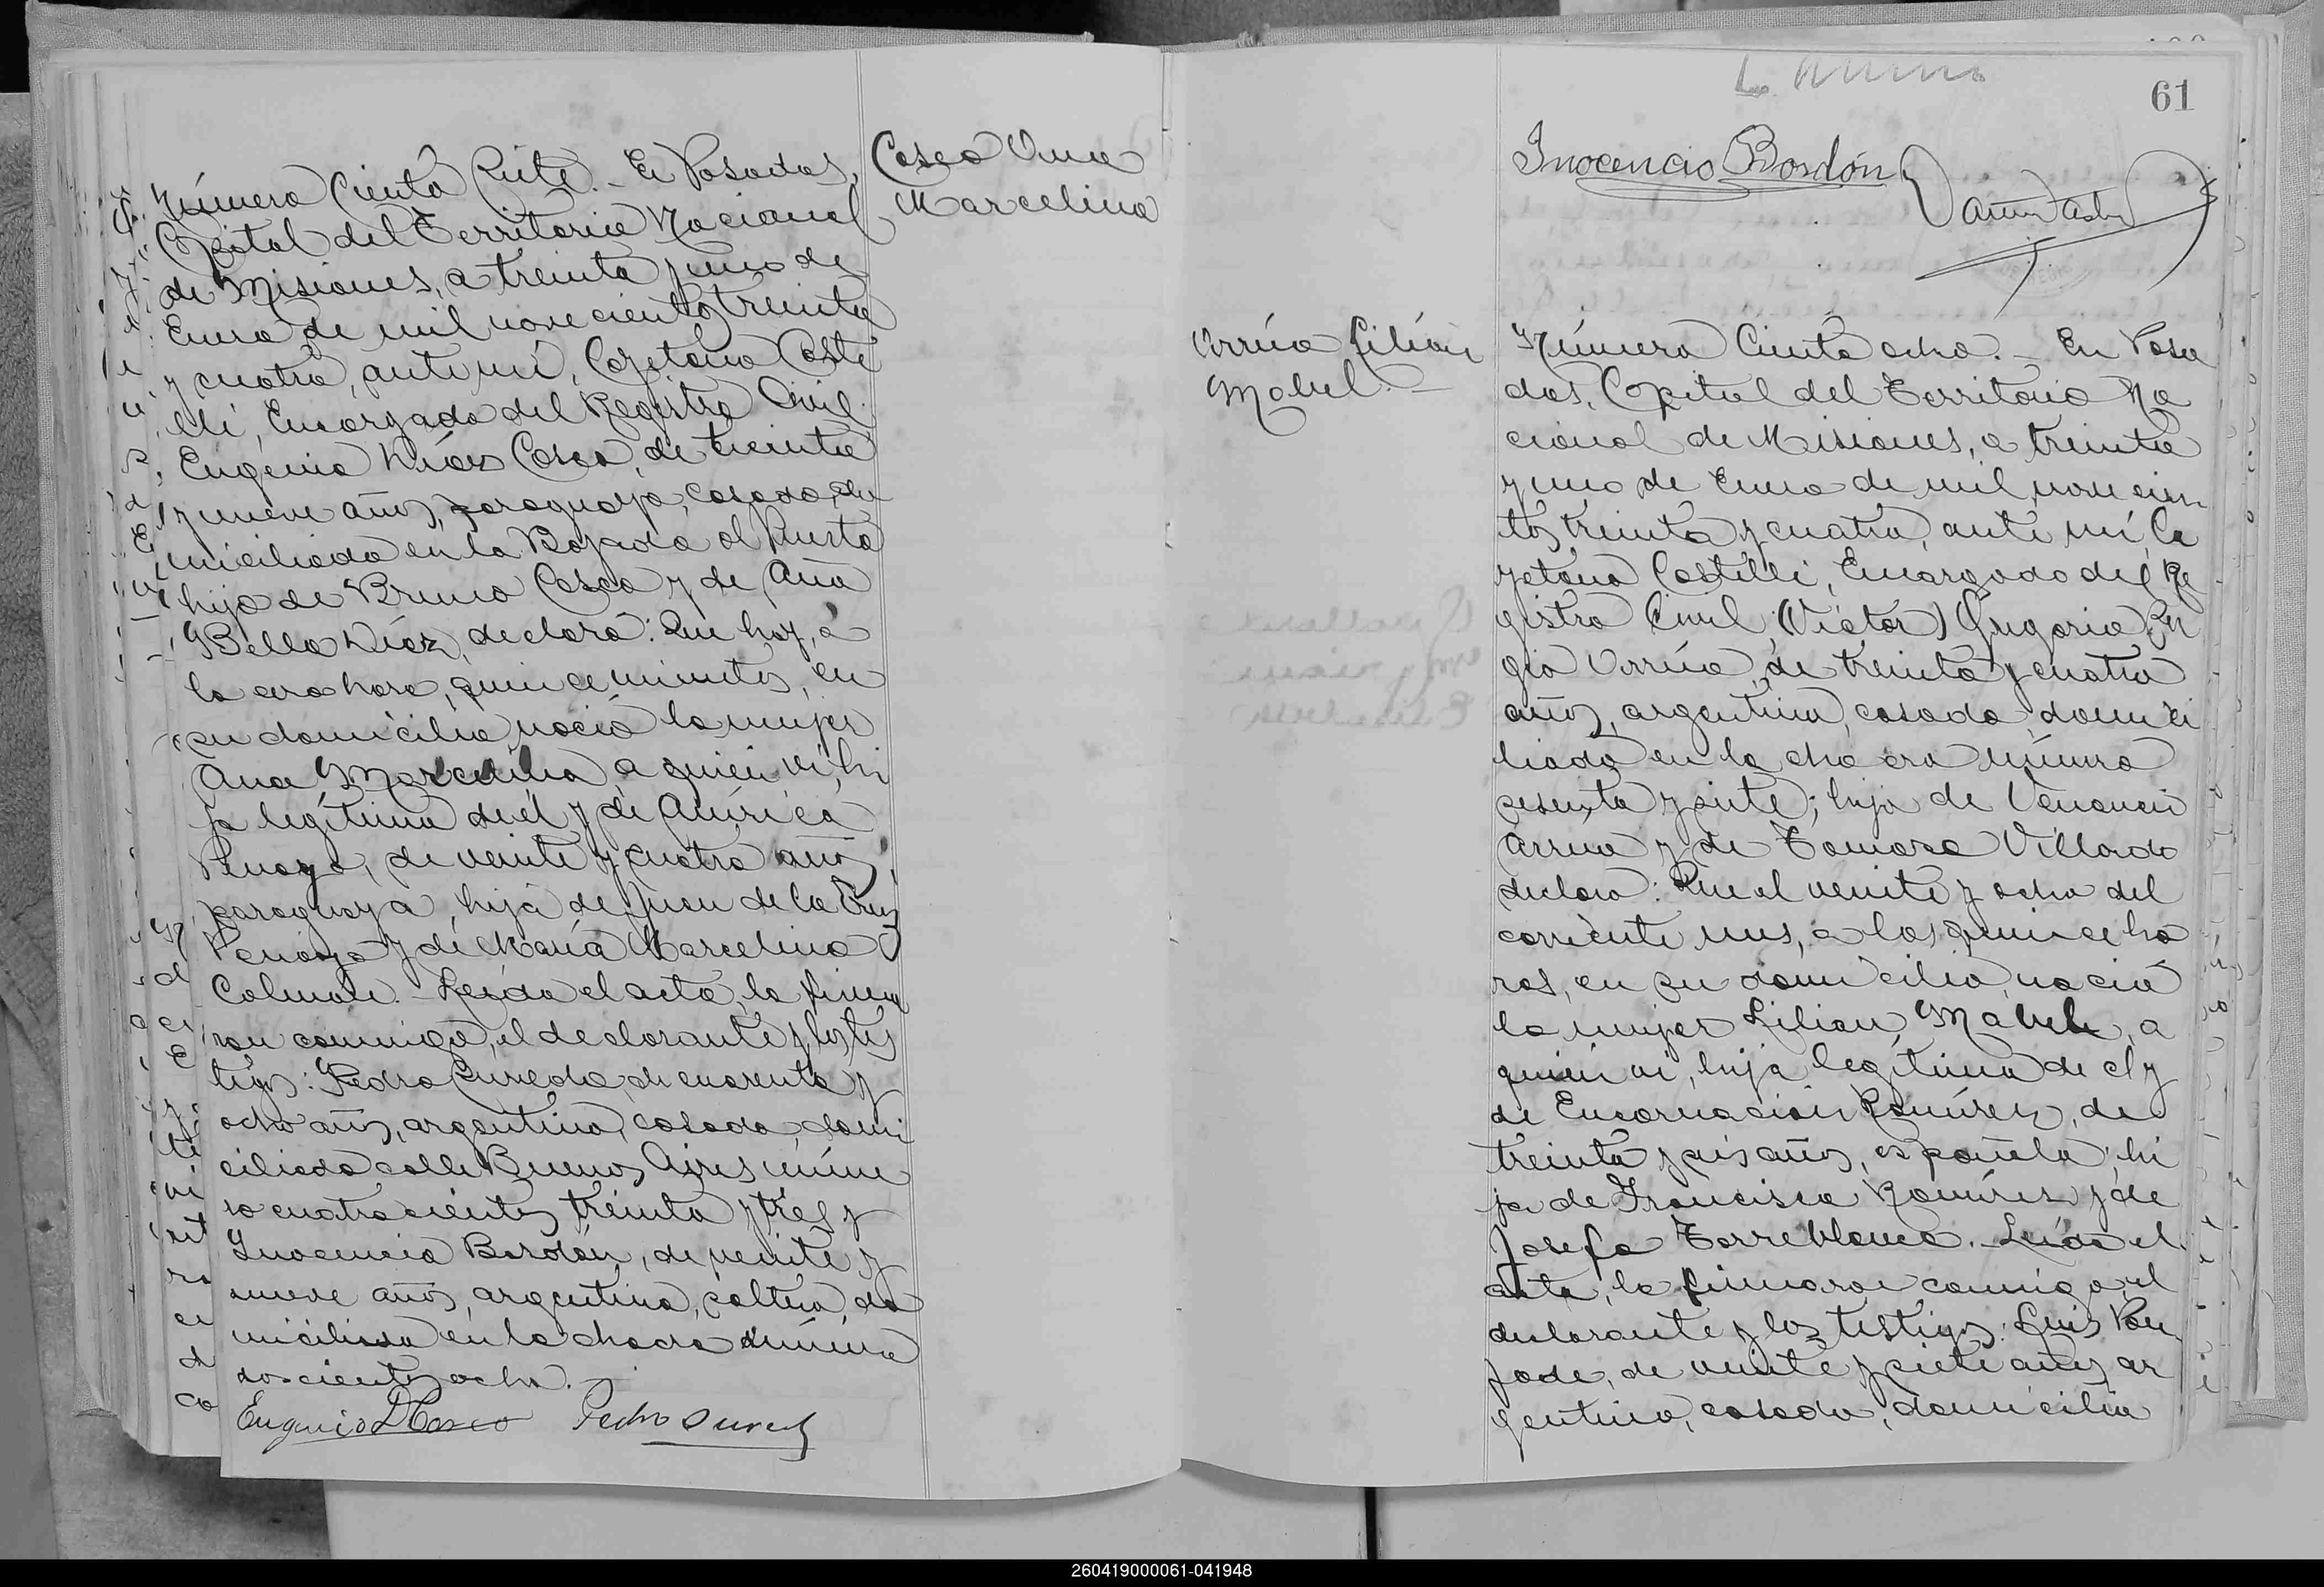 Número Ciento Siete. - En Posadas,
Capital del Territorio Nacional
de Misiones, a treinta y uno de
Enero de mil novecientos treinta
y cuatro, ante mí, Cayetano Caste
lli, Encargado del Registro Civil,
Eugenio Díaz Cosco, de treinta
y nueve años, paraguayo, casado, do
miciliado en la Bajada al Puerto
hijo de Bruno Cosco y de Ana
Bella Díaz, declara: Que hoy, a
la cero hora, quince minutos, en
su domicilio, nació la mujer
Ana Marcelina a quien vi, hi
ja legítima de él y de América
Penayo, de veinte y cuatro años,
paraguaya, hija de Juan de la Cruz
Penayo y de María Marcelina
Colmán. - Leída el acta, la firma
ron conmigo, el declarante y los tes
tigos: Pedro de cuarenta y
ocho años, argentino, casado, domi
ciliado calle Buenos Aires núme
ro cuatrocientos treinta y tres y
Inocencio Bordón, de veinte y
nueve años, argentino, soltero, do
miciliado en la chacra número
doscientos ocho. -
Eugenio D Cosco Pedro
Cosco Ana
Marcelina
61
Inocencio Bordón
Arrúa Lilián
Mabel. -
Número Ciento ocho. - En Posa
das, Capital del Territorio Na
cional de Misiones, a treinta
y uno de Enero de mil novecien
tos treinta y cuatro, ante mí Ca
yetano Castelli, Encargado del Re
gistro Civil, (Víctor) Gregorio
Arrúa, de treinta y cuatro
años, argentino, casado, domici
liado en la chacra número
sesenta y siete; hijo de Venancio
Arrúa y de Tomasa Villordo
declara: Que el veinte y ocho del
corriente mes, a las quince ho
ras, en su domicilio, nació
la mujer Lilian Mabel, a
quien vi, hija legítima de él y
de Encarnación Ramírez, de
treinta y seis años, española, hi
ja de Francisco Ramírez y de
Josefa Torreblanca. Leída el
acta, la firmaron conmigo, el
declarante y los testigos: Luis
de veinte y siete años, ar
gentino, casado, domicilia
260419000061-041948